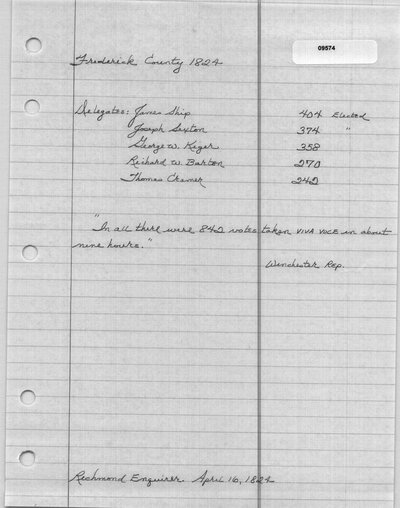 09574
Frederick County 1824
Delegates: James Ship 404 Elected
Joseph Sexton 374 "
George W. Kiger 358
Richard W. Barton 270
Thomas Cramer 242
"In all there were 842 votes taken VIVA VOCE in about
nine hours."
Winchester Rep.
Richmond Enquirer April 16, 1824